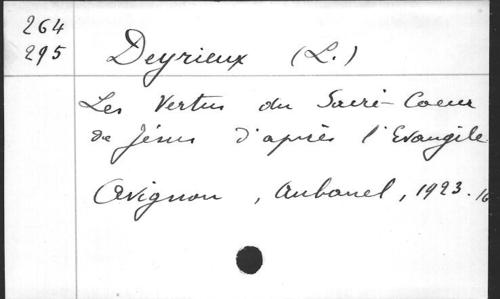 264
295
Deyrieux (L.)
Les Vertus du Sacré-Coeur
de Jésus d'après l'Evangile
Avignon, Aubanel, 1923. 16